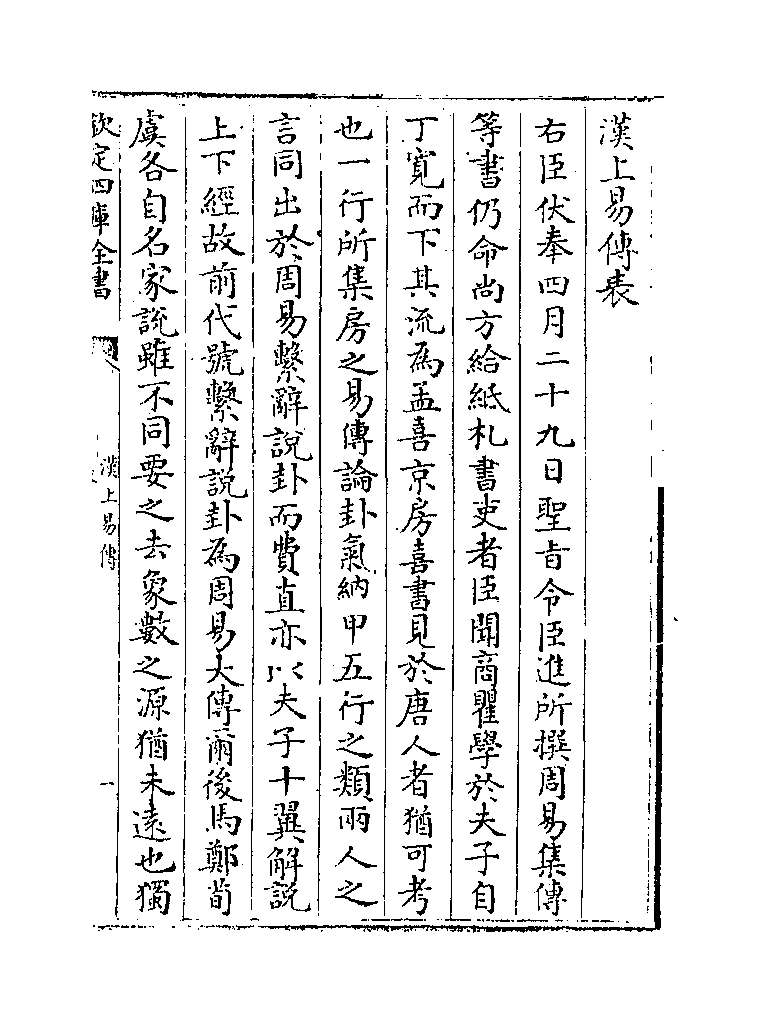 漢上易傳表
右臣伏奉四月二十九日聖旨令臣進所撰周易集傳
等書仍命尚方給紙札書吏者臣聞商瞿學於夫子自
丁寛而下其流為孟喜京房喜書見於唐人者猶可考
也一行所集房之易傳論卦氣納甲五行之類兩人之
言同出於周易繫辭説卦而費直亦以夫子十翼解説
上下經故前代號繫辭説卦為周易大傳爾後馬鄭荀
虞各自名家説雖不同要之去象數之源猶未遠也獨
欽定四庫全書
漢上易傳
一